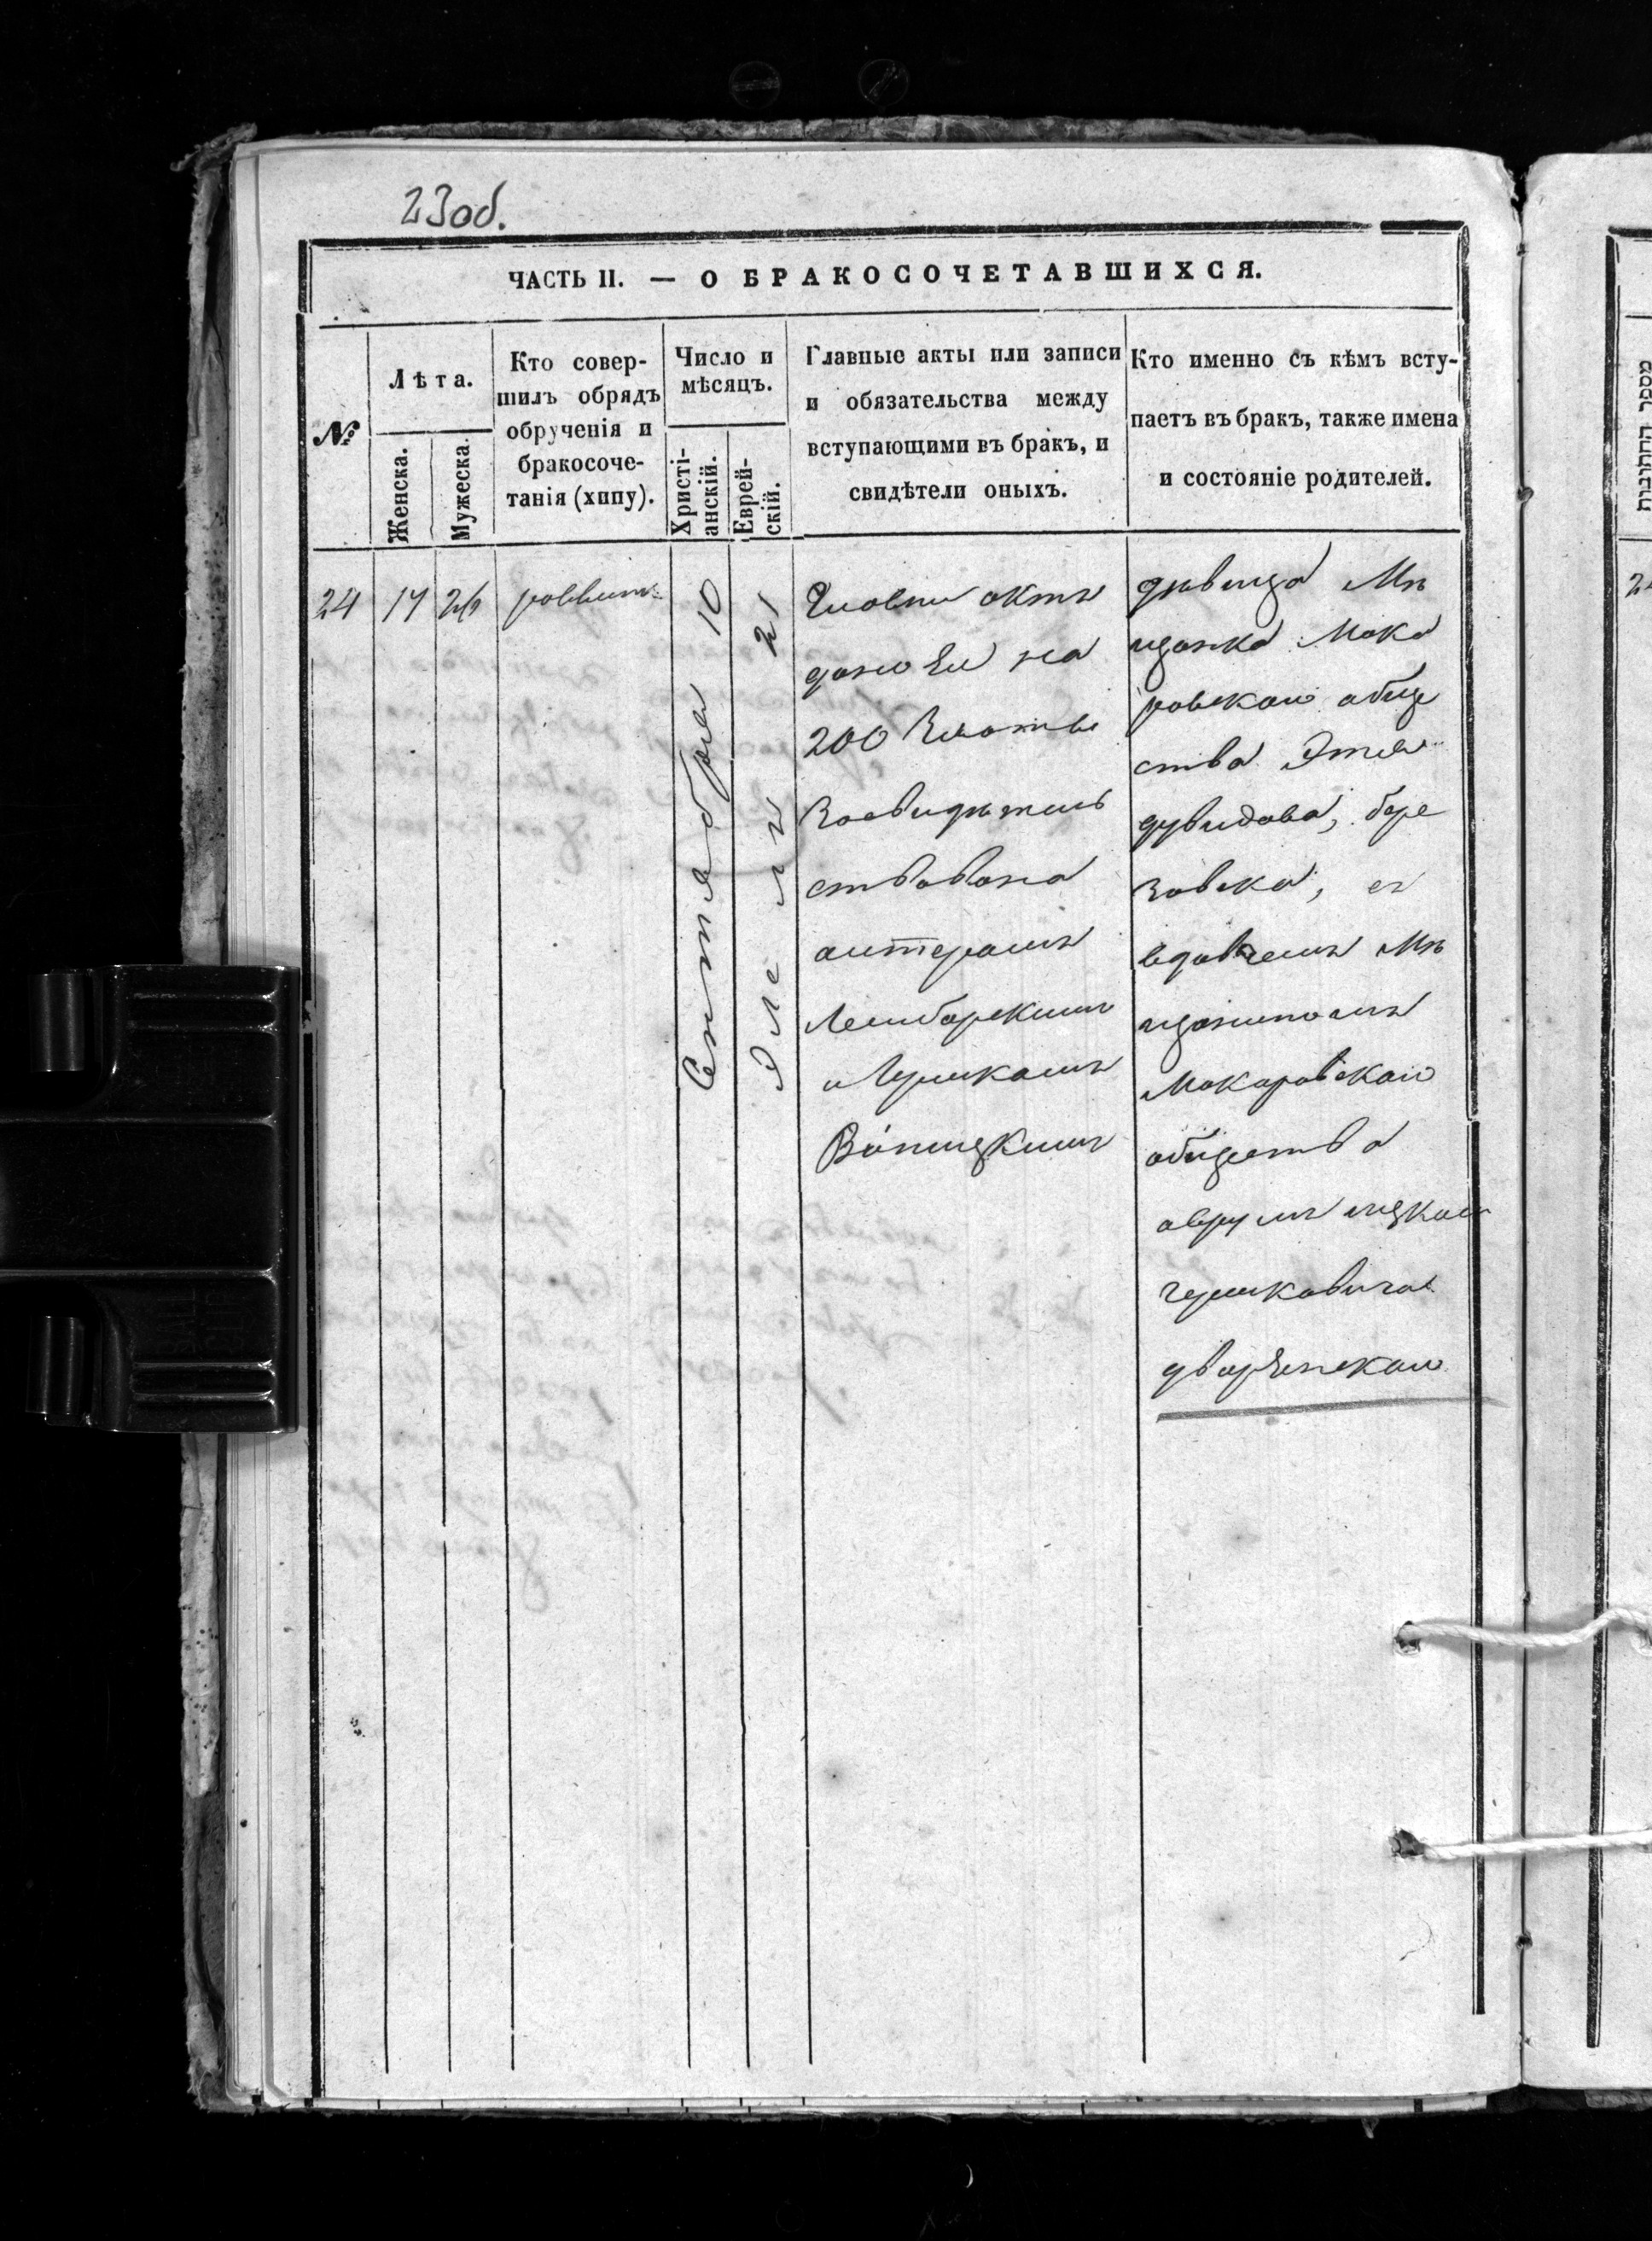 23 об.
ЧАСТЬ II. — О БРАКОСОЧЕТАВШИХСЯ.
№
Лѣта.
Женска.
Мужеска.
Кто совер-
шилъ обрядъ
обрученія и
бракосоче-
танія (хипу).
Число и
мѣсяцъ.
Христі-
анскій.
Еврей-
скій.
Главные акты или записи
и обязательства между
вступающими въ бракъ, и
свидѣтели оныхъ.
Кто именно съ кѣмъ всту-
паетъ въ бракъ, также имена
и состояніе родителей.
24
17
26
раввинъ
Сентября 10
Элелъ 21
актъ
данъ Ей на
200 Злоты
Засвидѣтель
ствована
Лембарскимъ
дѣвица Мѣ
щанка Мака
ровскаго обще
ства Этля
дувидова, бере
зовска, съ
вдовцемъ Мѣ
щаниномъ
Макаровскаго
общества
аврумъ ицкомъ
гершковича
מספר החתונות